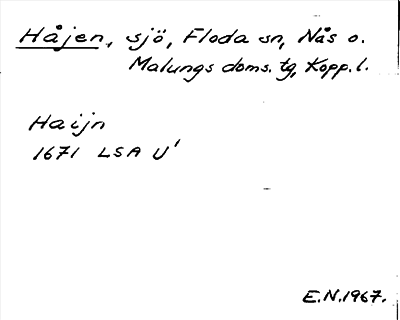 Håjen, sjö, Floda sn, Nås o.
Malungs doms. tg, Kopp. l.
Haijn
1671 LSA U'
E.N. 1967.